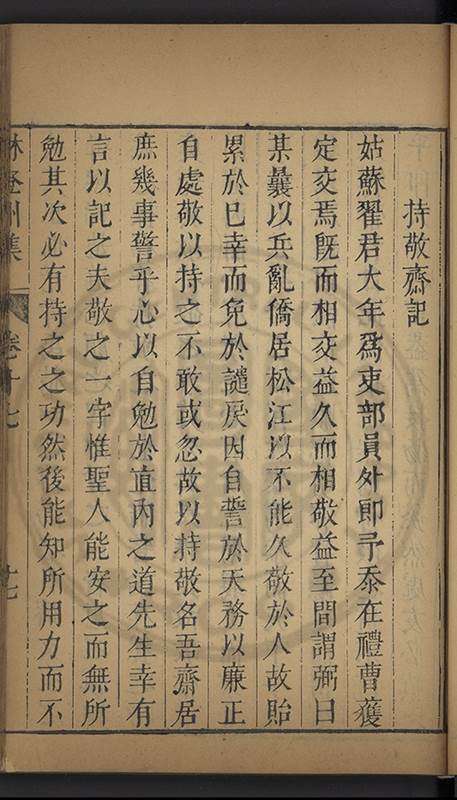 持敬齋記
姑蘇翟君大年爲吏部員外郎予忝在禮曹獲
定交焉旣而相交益久而相敬益至間謂弼曰
某曩以兵亂僑居松江以不能久敬於人故貽
累於已幸而免於譴戾因自誓於天務以廉正
自處敬以持之不敢或忽故以持敬名吾齋居
庶幾事警乎心以自勉於直內之道先生幸有
言以記之夫敬之一字惟聖人能安之而無所
勉其次必有持之之功然後能知所用力而不
卷十七
十七